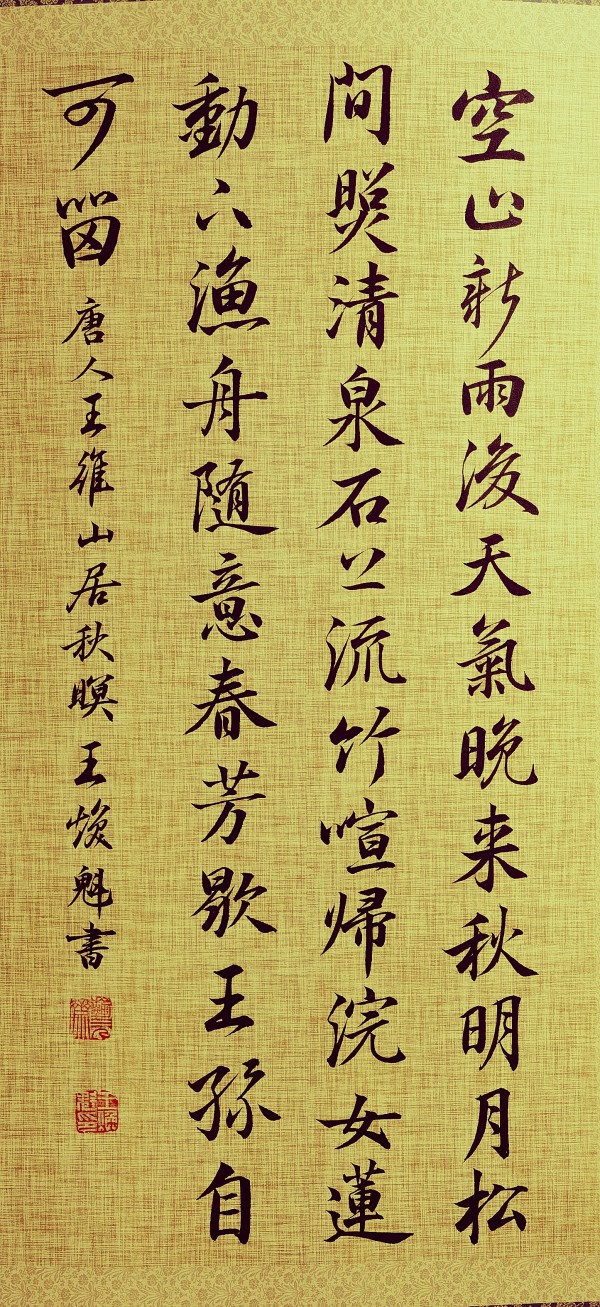 空山新雨後天氣晚来秋明月松
間照清泉石上流竹喧帰浣女蓮
動下漁舟随意春芳歇王孫自
可留 唐人王維山居秋暝 王煥魁書